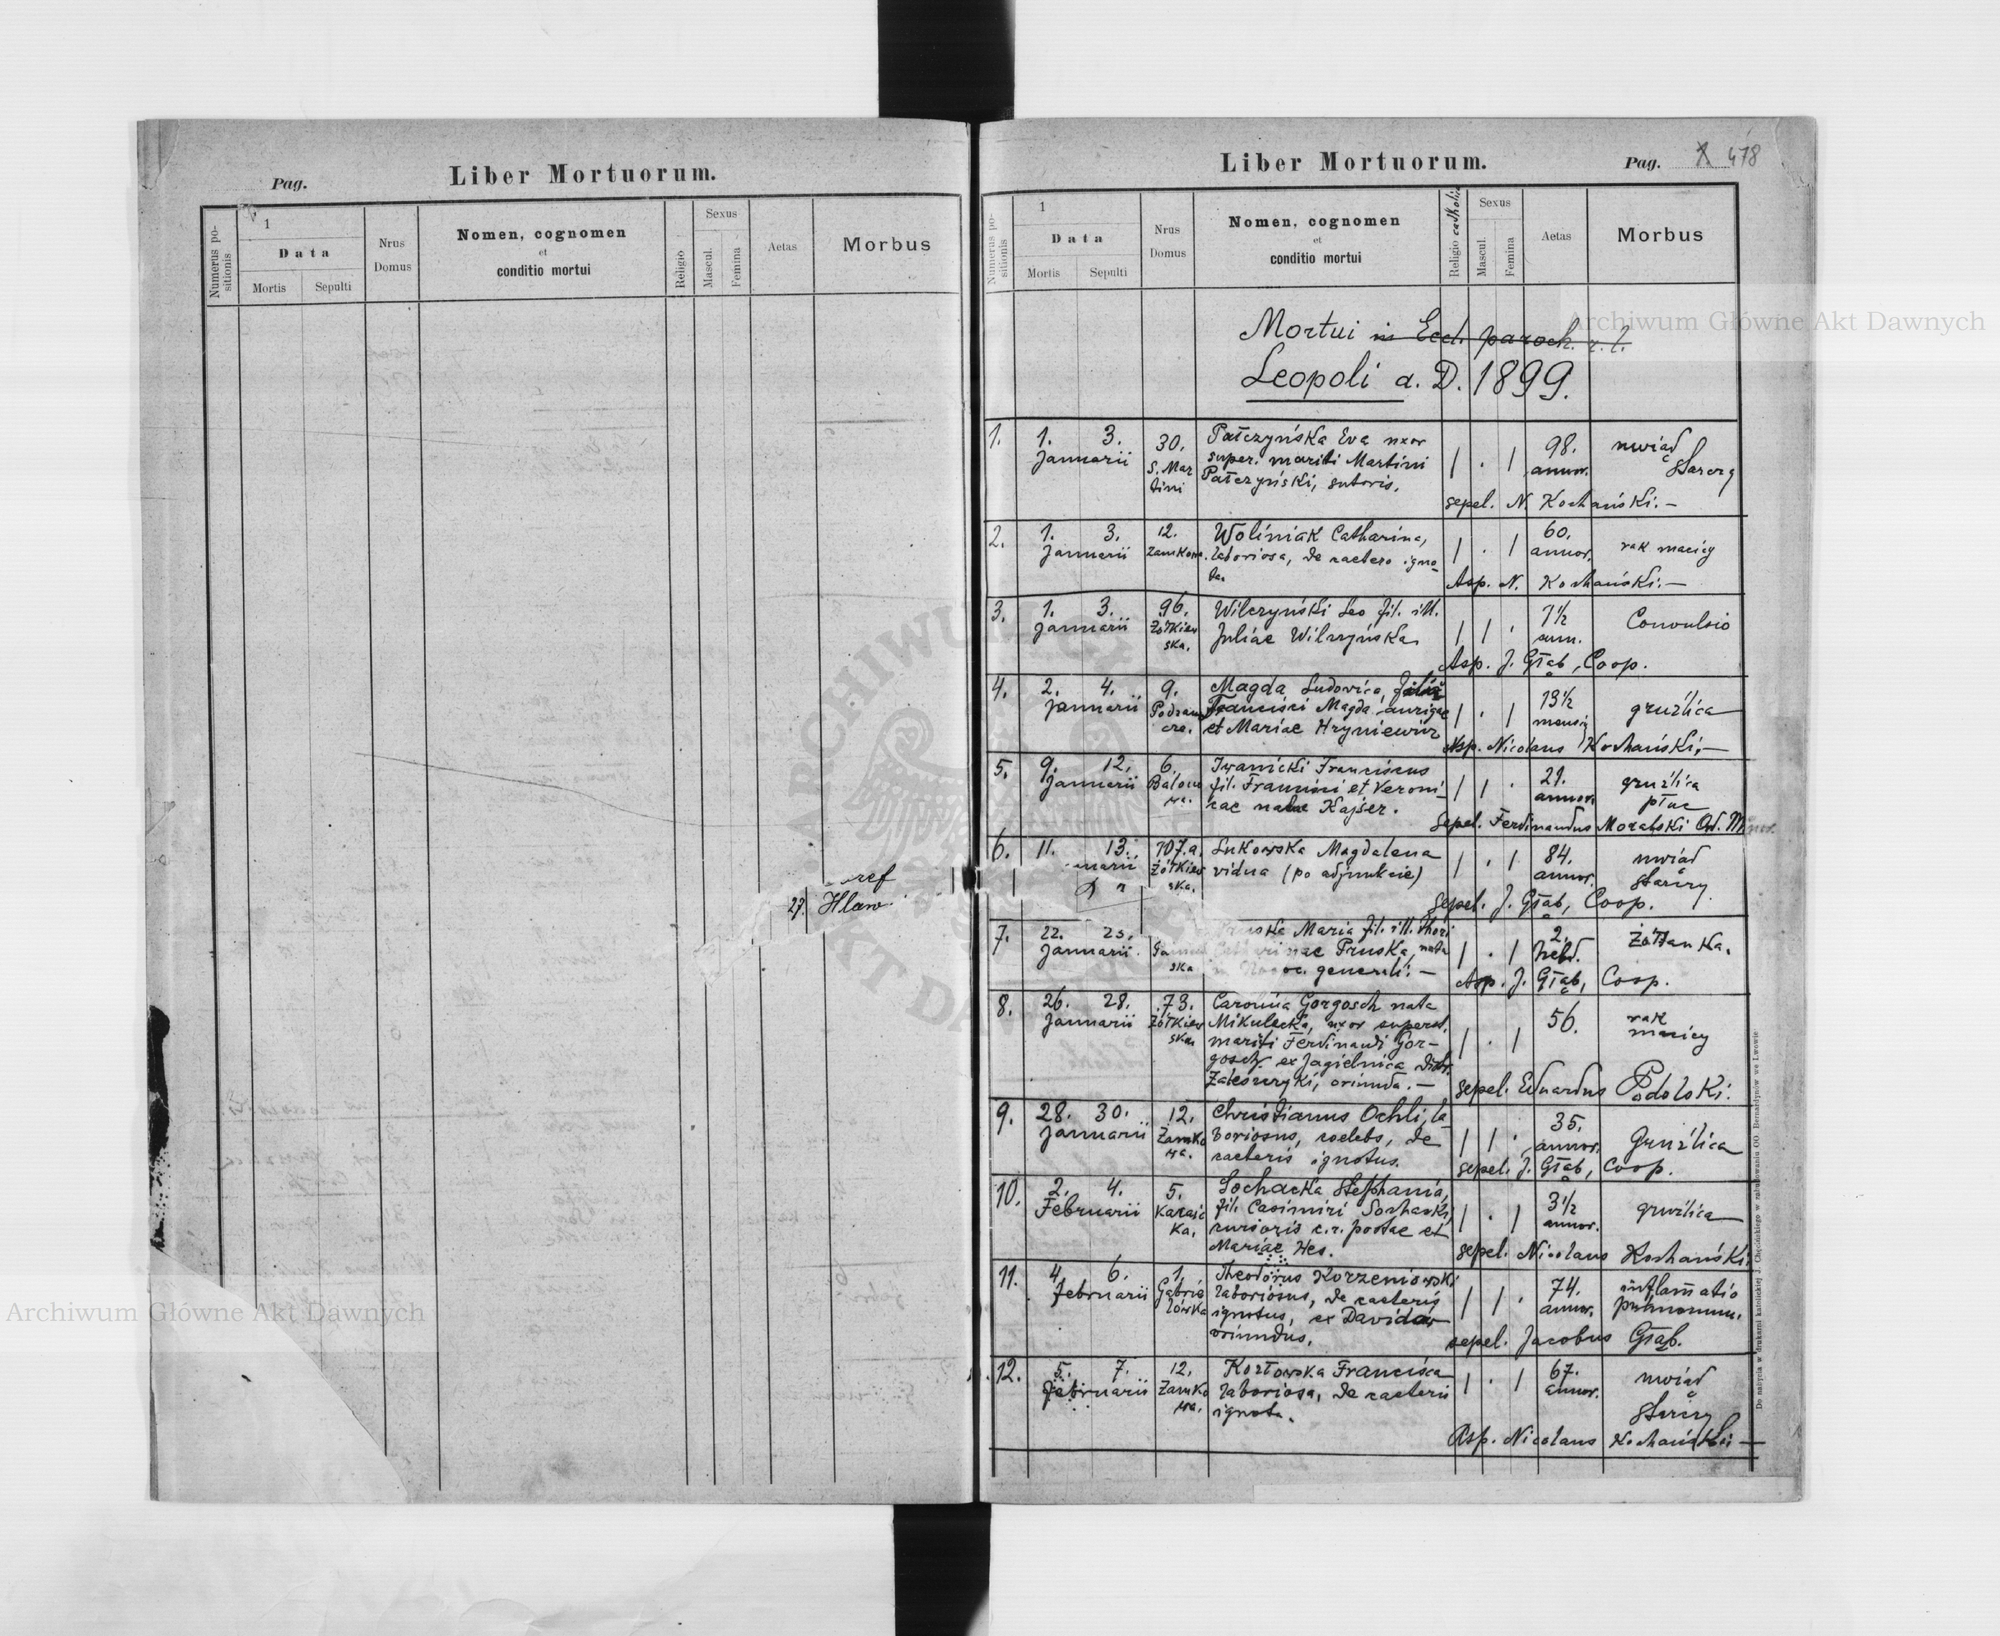 Pag.
Liber Mortuorum.
Numerus po-
sitionis
1
Data
Mortis
Sepulti
Nrus
Domus
Nomen, cognomen
et
conditio mortui
Religio
Sexus
Mascul.
Femina
Aetas
Morbus
27. Hlaw
Liber Mortuorum.
Pag. 478
Numerus po-
sitionis
1
Data
Mortis
Sepulti
Nrus
Domus
Nomen, cognomen
et
conditio mortui
Religio catholic
Sexus
Mascul.
Femina
Aetas
Morbus
Archiwum Główne Akt Dawnych
Mortui in Eccl. paroch. r. l.
Leopoli a. D. 1899.
1. 1. 3. Januarii
30. S. Mar
tini
Pałczyńska Eva uxor
super. mariti Martini
Pałczyński, sutoris.
98. annor.
uwiąd starczy
sepel. N. Kochański.—
2. 1. 3. Januarii
12. Zamkow.
Woliniak Catharina,
laboriosa, de caetero igno-
ta.
60. annor.
rak macicy
Asp. N. Kochański.—
3. 1. 3. Januarii
96. Żółkiew
ska.
Wilczyński Leo fil. ill.
Juliae Wilczyńska
1½ ann.
Convulsio
Asp. J. Głąb, Coop.
4. 2. 4. Januarii
9. Podzam
cze.
Magda Ludovica, filia
Francisci Magda aurigae
et Mariae Hryniewicz
13½ mensiu
gruźlica
Asp. Nicolaus Kochański.—
5. 9. 12. Januarii
6. Balono
wa.
Iwanicki Franciscus
fil. Francisci et Veroni-
cae natae Kajser.
21. annor.
gruźlica
płuc
Sepel. Ferdinandus Moralski Ord. Min
6. 11. 13. nuarii
107.a. Żółkiew
ska.
Lukowska Magdalena
vidua (po adjunkcie)
84. annor.
uwiąd
starczy
sepel. J. Głąb, Coop.
7. 22. 23. Januarii
ska
Pruska Maria fil. ill. thori
Catharinae Pruska, nata
in Nosoc. generali.—
2. hebd.
Żółtaczka.
Asp. J. Głąb, Coop.
8. 26. 28. Januarii
73. Żółkiew
ska
Carolina Gorgosch nata
Mikulecka, uxor superst.
mariti Ferdinandi Gor-
gosch, ex Jagielnica distr.
Zaleszczyki, oriunda.—
56.
rak
macicy
sepel. Eduardus Podolski.
9. 28. 30. Januarii
12. Zamko
wa.
Christianus Ochli, la-
boriosus, coelebs, de
caeteris ignotus.
35. annor.
Gruźlica
sepel. J. Głąb, Coop.
10. 2. 4. Februarii
5.
Sochacka Stephania,
fil. Casimiri Sochacki,
cursoris c.r. postae et
Mariae Hes.
3½ annor.
gruźlica
sepel. Nicolaus Kochański.
11. 4. 6. Februarii
1. Gabrie
lówka
Theodorus Korzeniowski
laboriosus, de caeteris
ignotus, ex Davidów
oriundus.
74. annor.
inflamatio
pulmonum.
sepel. Jacobus Głąb.
12. 5. 7. Februarii
12. Zamko
wa.
Kozłowska Francisca
laboriosa, de caeteris
ignota.
67. annor.
uwiąd
starczy
Asp. Nicolaus Kochański—
Do nabycia w drukarni katolickiej J. Chęcińskiego w zabudowaniu OO. Bernardynów we Lwowie
Archiwum Główne Akt Dawnych